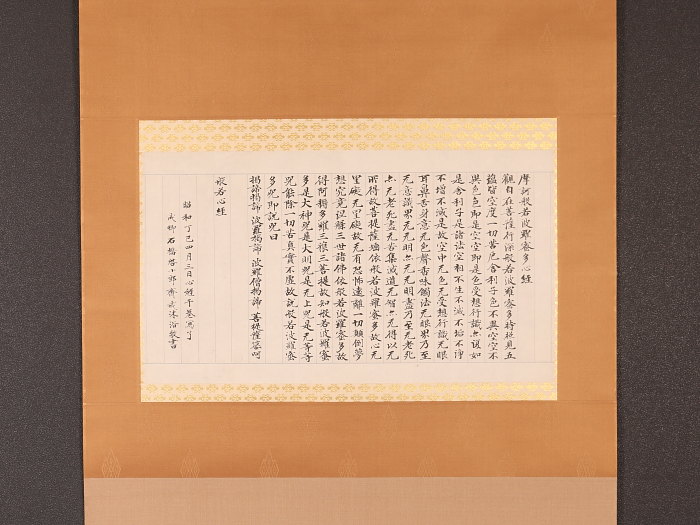 摩訶般若波羅蜜多心経
観自在菩薩行深般若波羅蜜多時照見五
蘊皆空度一切苦厄舎利子色不異空空不
異色色即是空空即是色受想行識亦復如
是舎利子是諸法空相不生不滅不垢不浄
不増不減是故空中无色无受想行識无眼
耳鼻舌身意无色聲香味觸法无眼界乃至
无意識界无无明亦无无明盡乃至无老死
亦无老死盡无苦集滅道无智亦无得以无
所得故菩提薩埵依般若波羅蜜多故心无
罣礙无罣礙故无有恐怖遠離一切顛倒夢
想究竟涅槃三世諸佛依般若波羅蜜多故
得阿耨多羅三藐三菩提故知般若波羅蜜
多是大神咒是大明咒是无上咒是无等等
咒能除一切苦真實不虚故説般若波羅蜜
多咒即説咒曰
揭諦揭諦 波羅揭諦 波羅僧揭諦 菩提薩婆呵
般若心経
昭和丁巳四月三日心経千巻寫了
石橋啓十郎齋戒沐浴敬書